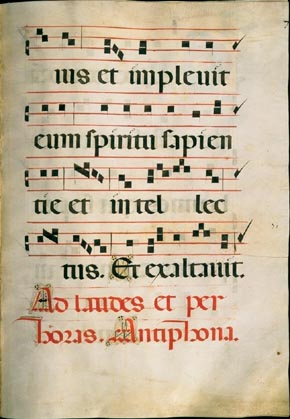 ius et impleuit
eum spiritu sapien
tie et intel lec
tus. Et exaltauit.
Ad laudes et per
horas. Antiphona.